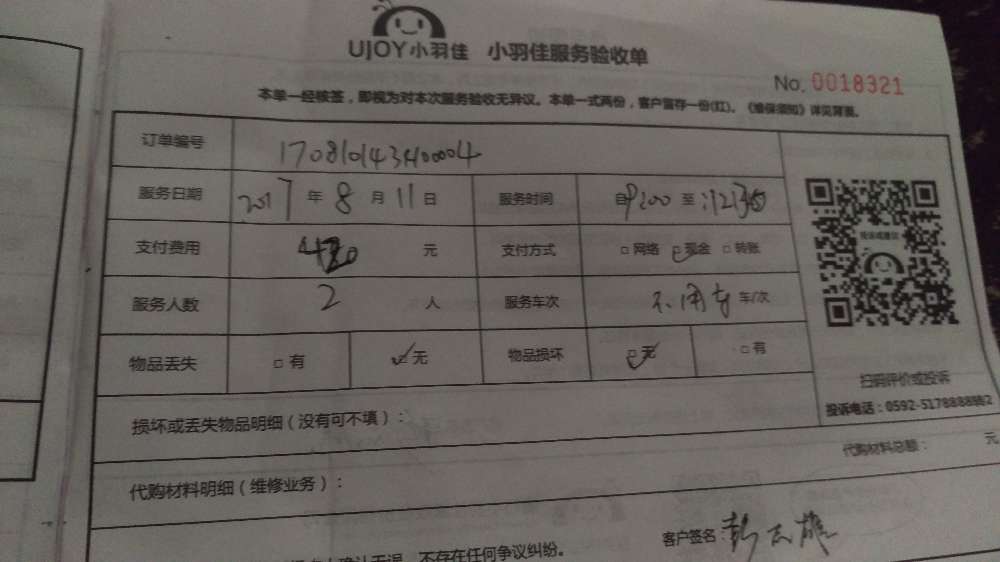 UJOY小羽佳 小羽佳服务验收单
No. 0018321
本单一经核签，即视为对本次服务验收无异议。本单一式两份，客户留存一份(红)。《维保须知》详见背面。
订单编号
服务日期 2017 年 8 月 11 日 服务时间 自9:00 至
支付费用 元 支付方式 □ 网络 □ 现金 □ 转账
服务人数 2 人 服务车次 不用车 车/次
物品丢失 □ 有 □ 无 物品损坏 □ 无 □ 有
扫码评价或投诉
投诉电话：0592-5178888转2
损坏或丢失物品明细（没有可不填）：
代购材料总额： 元
代购材料明细（维修业务）：
客户签名：
不存在任何争议纠纷。